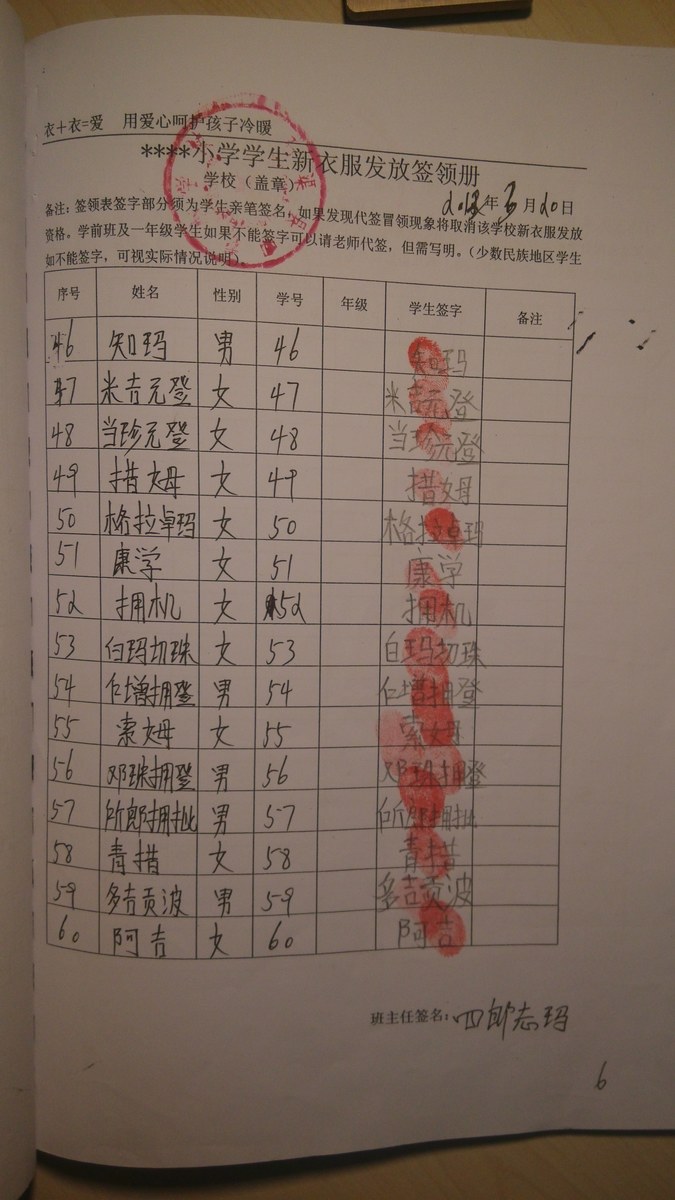 衣+衣=爱 用爱心呵护孩子冷暖
****小学学生新衣服发放签领册
学校（盖章） 年 月20日
备注：签领表签字部分须为学生亲笔签名，如果发现代签冒领现象将取消该学校新衣服发放
资格。学前班及一年级学生如果不能签字可以请老师代签，但需写明。（少数民族地区学生
如不能签字，可视实际情况说明）。
序号 姓名 性别 学号 年级 学生签字 备注
46 知玛 男 46 知玛
47 米吉元登 女 47 米吉元登
48 当珍元登 女 48 当珍元登
49 措姆 女 49 措姆
50 格拉卓玛 女 50 格拉卓玛
51 康学 女 51 康学
52 拥机 女 52 拥机
53 白玛初珠 女 53 白玛初珠
54 仁增拥登 男 54 仁增拥登
55 索姆 女 55 索姆
56 邓珠拥登 男 56 邓珠拥登
57 拥批 男 57 拥批
58 青措 女 58 青措
59 多吉贡波 男 59 多吉贡波
60 阿吉 女 60 阿吉
班主任签名：四郎志玛
6